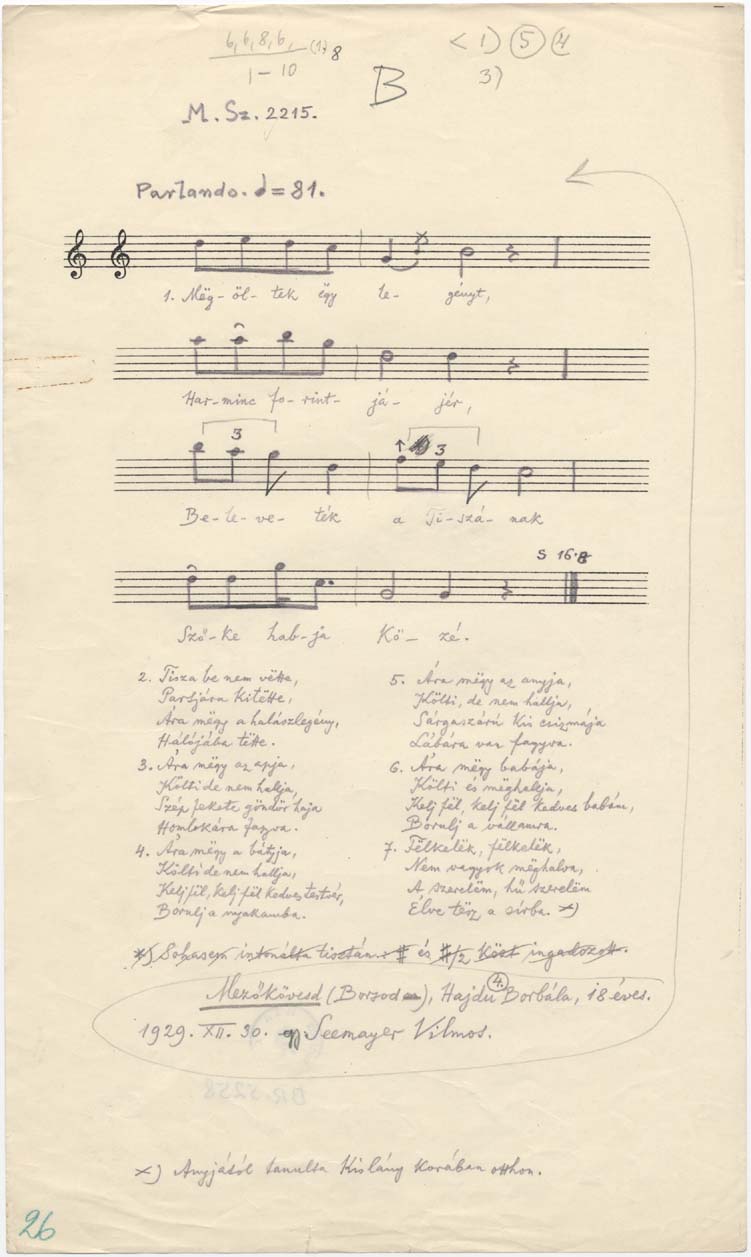 6, 6, 8, 6, (1) 8
1 – 10
< 1) 5 4
3)
B
M. Sz. 2215.
Parlando. = 81.
1. Mëg-öl-tek ëgy le-gényt,
Har-minc fo-rint-já-jér,
3 3
Be-le-ve-ték a Ti-szá-nak
S 16.8
Sző-ke hab-ja Kö-zé.
2. Tisza be nem vëtte,
Partjára Kitëtte,
Ára mëgy a halászlegény,
Hálójába tëtte.
3. Ára mëgy az apja,
Költi de nem hallja,
Szép fekete göndör haja
Homlokára fagyva.
4. Ára mëgy a bátyja,
Költi de nem hallja,
Kelj fël, kelj fël kedves testvér,
Borulj a nyakamba.
5. Ára mëgy az anyja,
Költi, de nem hallja,
Sárgaszárú Kis csizmája
Lábára van fagyva.
6. Ára mëgy babája,
Költi és mëghallja,
Kelj fël, kelj fël kedves babám,
Borulj a vállamra.
7. Fëlkelëk, fëlkelëk,
Nem vagyok mëghalva,
A szerelëm, hű szerelëm
Elve tësz a sírba. x)
*) Sohasem intonálta tisztán: # és #/2 Közt ingadozott.
Mezőkövesd (Borsod), Hajdu 4. Borbála, 18 éves.
1929. XII. 30. Seemayer Vilmos.
BR. 5258
x) Anyjától tanulta Kislány Korában otthon.
26